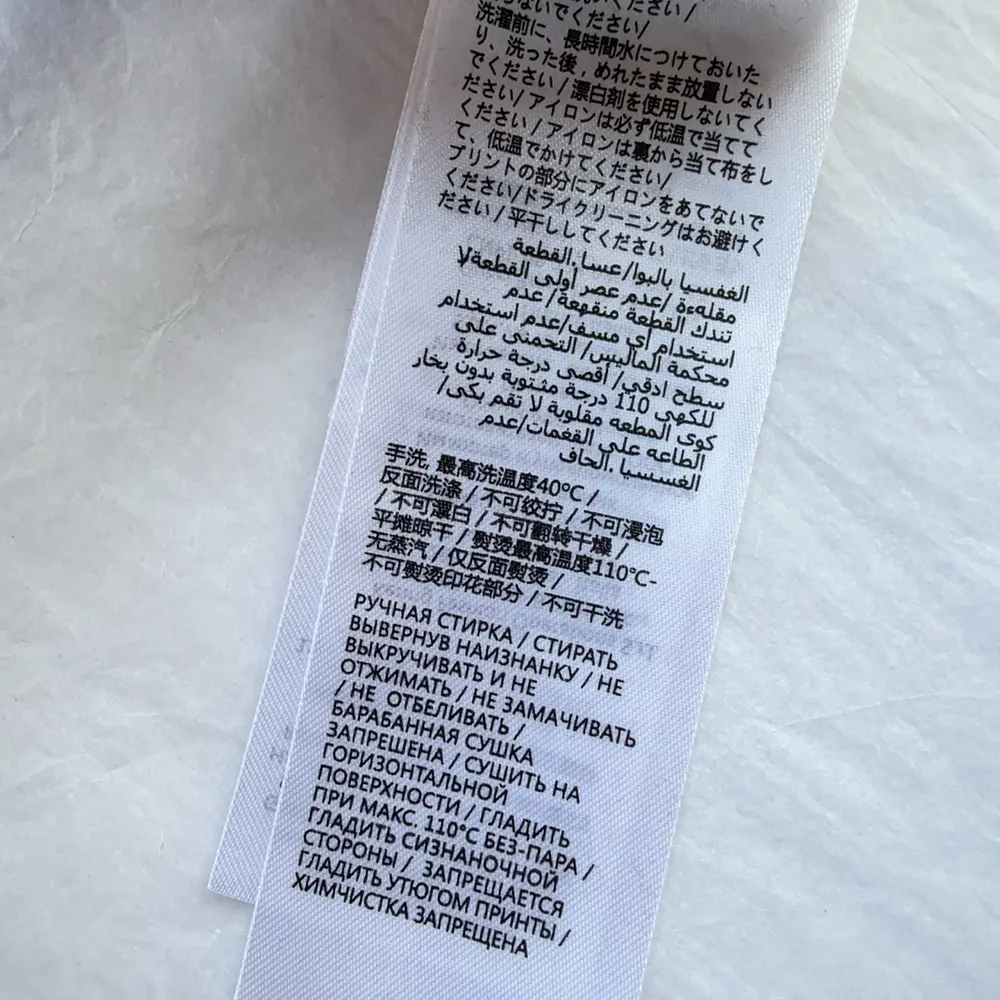 ください /
ないでください/
洗濯前に、長時間水につけておいた
り、洗った後,めれたまま放置しない
でください / 漂白剤を使用しないでく
ださい/ アイロンは必ず低温で当てて
ください / アイロンは裏から当て布をし
て、低温でかけてください/
プリントの部分にアイロンをあてないで
ください/ドライクリーニングはお避けく
ださい / 平干ししてください
الغفسيا باليوا/عسا.القطعة
مقلهءة /عدم عصر أولى القطعةلا
تندك القطعة منقهعة/ عدم
استخدام أي مسف/عدم استخدام
محكمة الماليس/ التحمنى على
سطح ادقي/ أقصى درجة حرارة
للكهى 110 درجة مئتوية بدون بخار
كوى المطعه مقلوبة لا تقم بكى/
الطاعه على القغمات/عدم
الغسسيا .الحاف
手洗, 最高洗温度40℃ /
反面洗涤 / 不可绞拧 / 不可浸泡
/ 不可漂白 / 不可翻转干燥 /
平摊晾干 / 熨烫最高温度110℃-
无蒸汽 / 仅反面熨烫 /
不可熨烫印花部分 / 不可干洗
РУЧНАЯ СТИРКА / СТИРАТЬ
ВЫВЕРНУВ НАИЗНАНКУ / НЕ
ВЫКРУЧИВАТЬ И НЕ
ОТЖИМАТЬ / НЕ ЗАМАЧИВАТЬ
/ НЕ ОТБЕЛИВАТЬ /
БАРАБАННАЯ СУШКА
ЗАПРЕШЕНА / СУШИТЬ НА
ГОРИЗОНТАЛЬНОЙ
ПОВЕРХНОСТИ / ГЛАДИТЬ
ПРИ МАКС. 110°C БЕЗ-ПАРА /
ГЛАДИТЬ СИЗНАНОЧНОЙ
СТОРОНЫ / ЗАПРЕЩАЕТСЯ
ГЛАДИТЬ УТЮГОМ ПРИНТЫ /
ХИМЧИСТКА ЗАПРЕЩЕНА